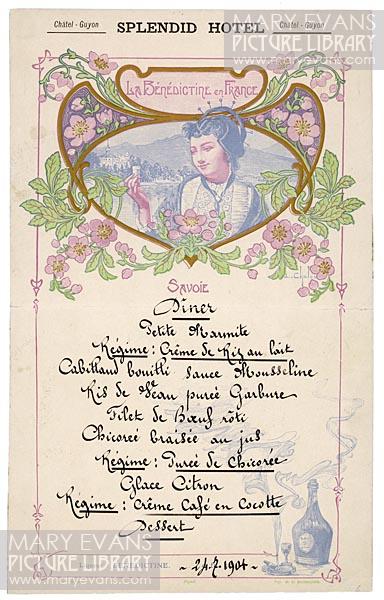 Châtel-Guyon SPLENDID HOTEL Châtel-Guyon
MARY EVANS
PICTURE LIBRARY
www.maryevans.com
LA BÉNÉDICTINE EN FRANCE
SAVOIE
Dîner
Petite Marmite
Régime: Crême de Riz au lait
Cabillaud bouilli sauce Mousseline
Ris de Veau purée Garbure
Filet de Bœuf rôti
Chicorée braisée au jus
Régime: Purée de Chicorée
Glace Citron
Régime: Crême Café en Cocotte
Dessert
BÉNÉDICTINE. - 24.7.1904 -
MARY EVANS
PICTURE LIBRARY
www.maryevans.com